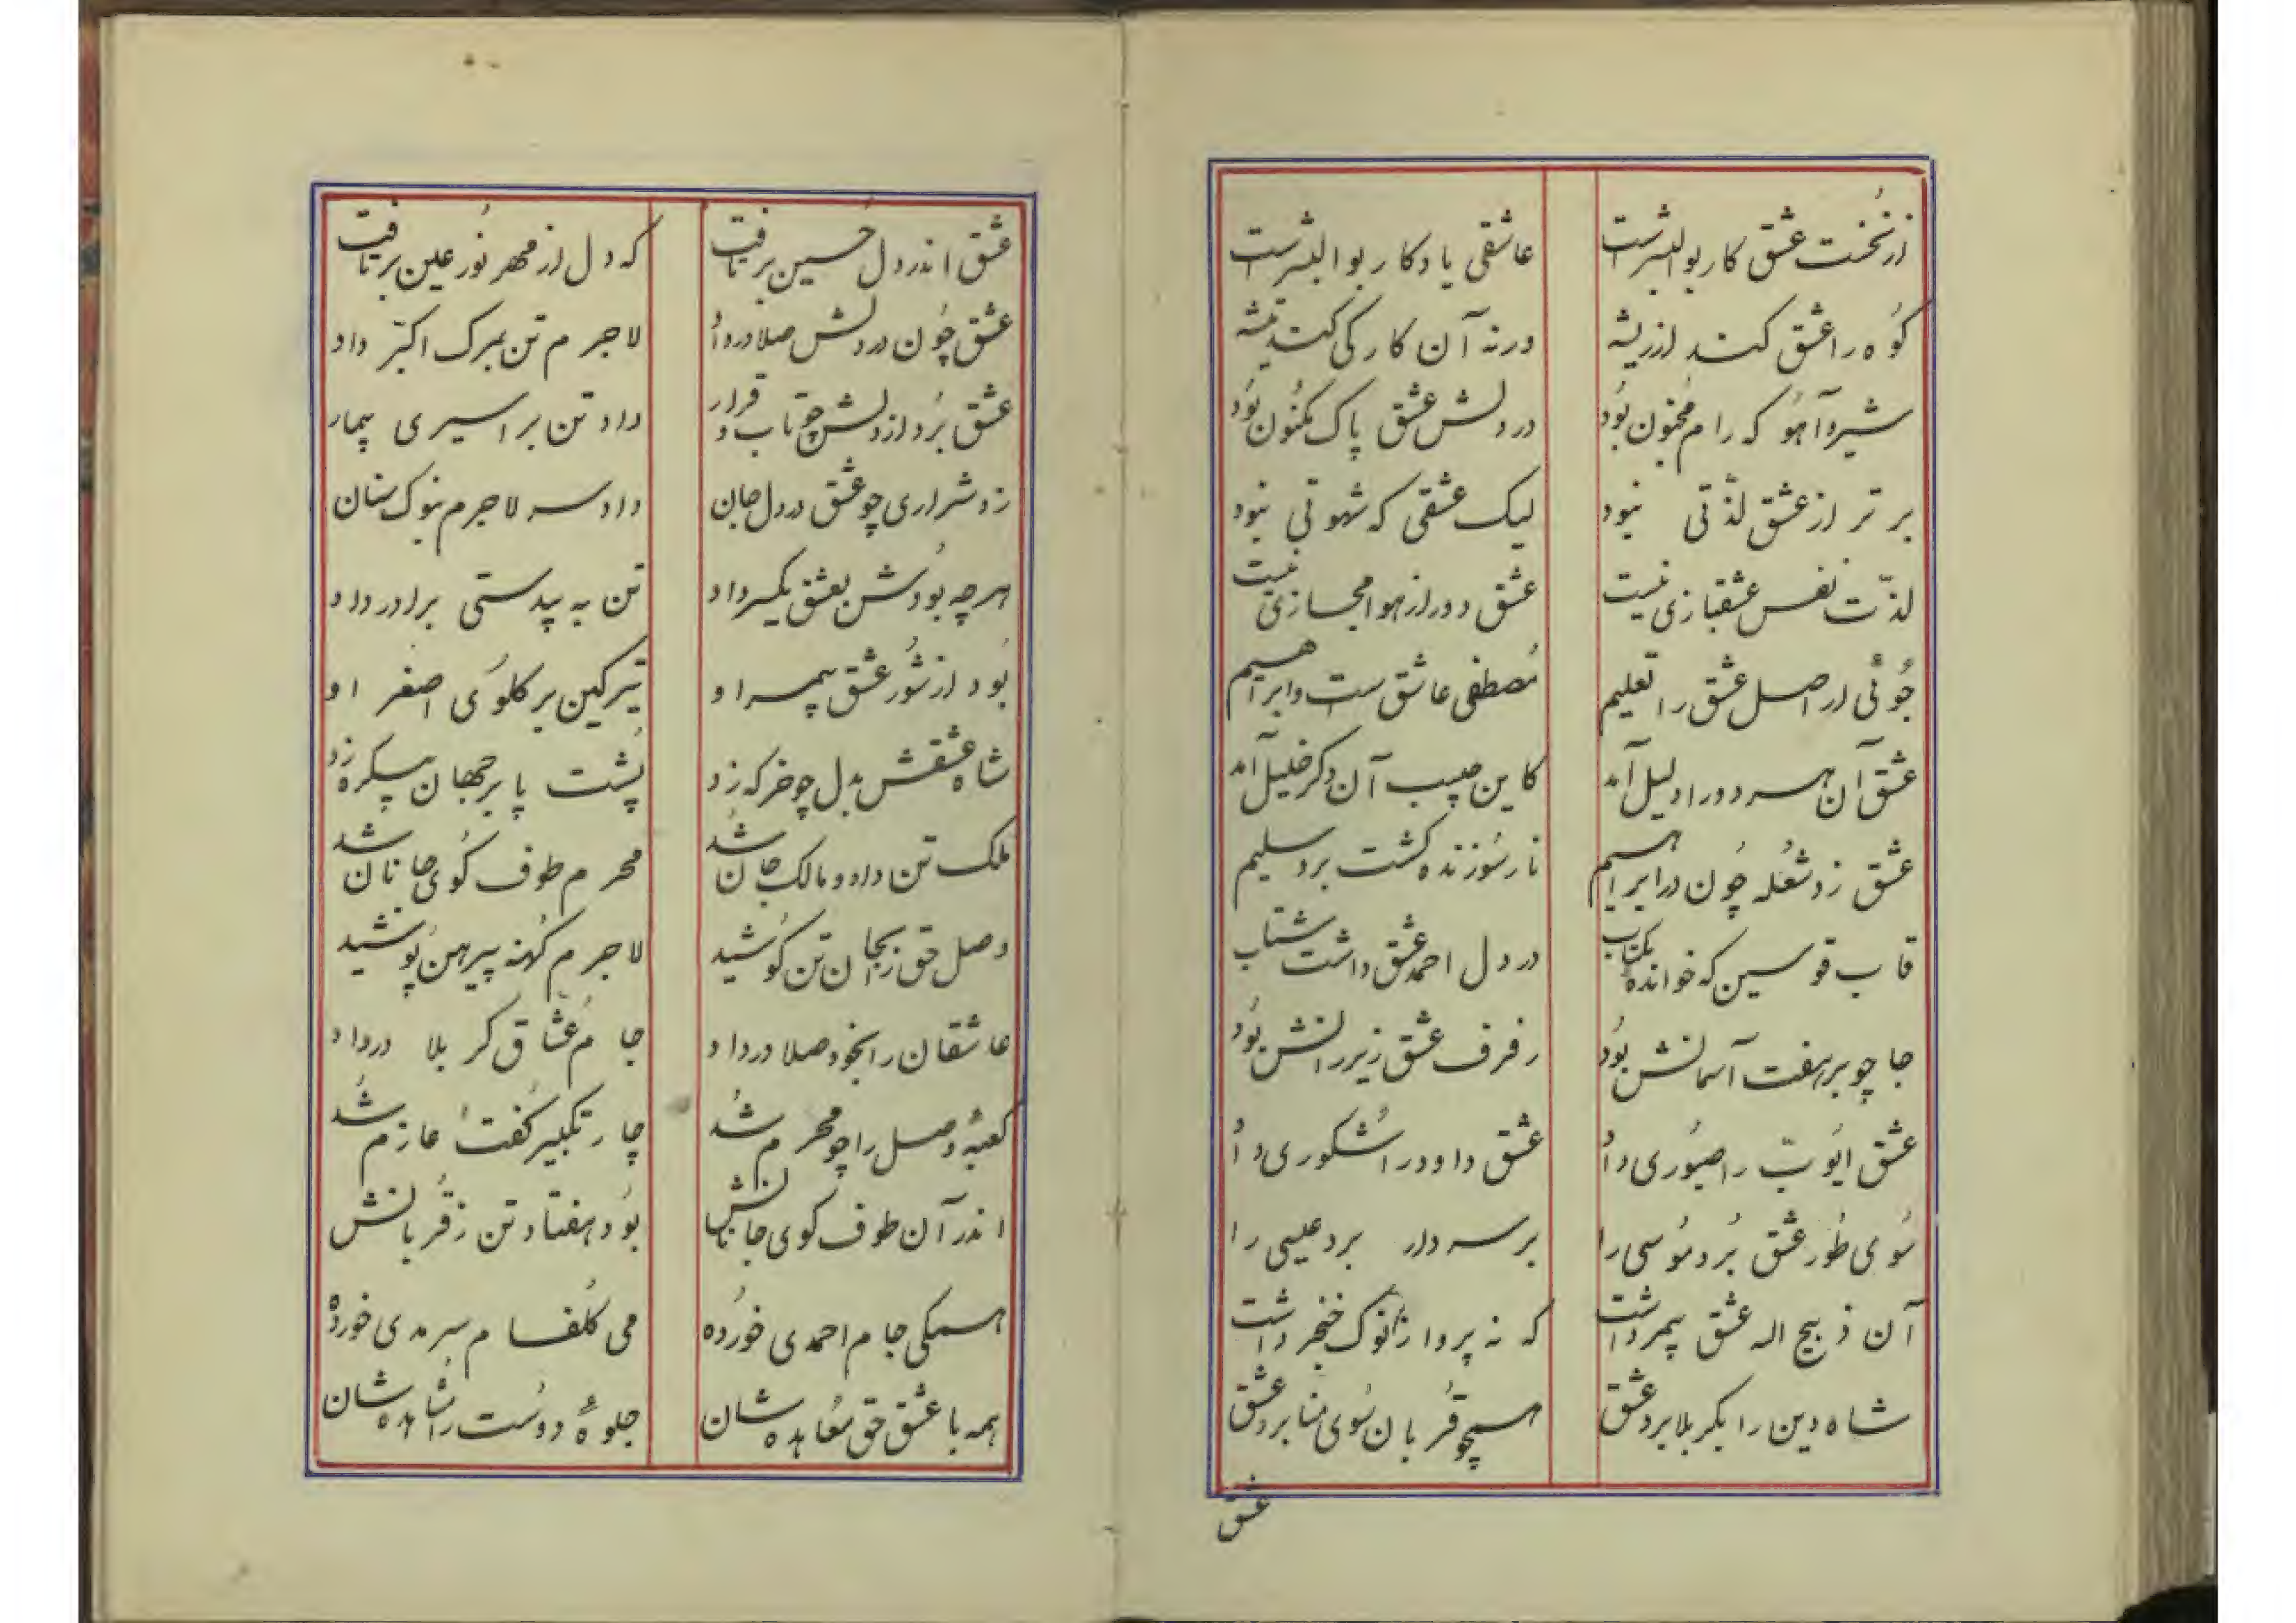 از نخست عشق کار بوالبشر است عاشقی یادکار بوالبشر است
کوه را عشق کند از ریشه ورنه آن کار کی کند تیشه
شیر و آهو که رام مجنون بود در دلش عشق پاک مکنون بود
برتر از عشق لذّتی نبود لیک عشقی که شهوتی نبود
لذّت نفس عشقبازی نیست عشق دور از هوا مجازی نیست
جوئی ار اصل عشق را تعلیم مصطفی عاشق ست و ابراهیم
عشق آن هر دو را دلیل آمد کاین حبیب آن دکر خلیل آمد
عشق زد شعله چون در ابراهیم نار سوزنده کشت برد سلیم
قاب قوسین که خوانده بکتاب در دل احمد عشق داشت شتاب
جا چو بر هفت آسمانش بود رفرف عشق زیر رانش بود
عشق ایوب را صبوری داد عشق داود را شکوری داد
سوی طور عشق برد موسی را بر سر دار برد عیسی را
آن ذبیح اله عشق بر سر داشت که نه پروا ز نوک خنجر داشت
شاه دین را بکربلا برد عشق همچو قربان سوی منا برد عشق
عشق
عشق اندر دل حسین بر تافت که دل از مهر نور عین بر تافت
عشق چون در دلش صلا در داد لاجرم تن بمرک اکبر داد
عشق برد از دلش چو تاب و قرار داد تن بر اسیری بیمار
زد شراری چو عشق در دل و جان داد سر لاجرم بنوک سنان
هرچه بودش بعشق یکسر داد تن به بیدستی برادر داد
بود از شور عشق بیمر او تیر کین بر کلوی اصغر او
شاه عشقش بدل چو خرکه زد پشت پا بر جهان یکره زد
ملک تن داد و مالک جان شد محرم طوف کوی جانان شد
وصل حق را بجان تن کوشید لاجرم کهنه پیرهن پوشید
عاشقان را بخود صلا در داد جام عشاق کربلا در داد
کعبهٔ وصل را چو محرم شد چار تکبیر کفت عازم شد
اندر آن طوف کوی جانانش بود هفتاد تن ز قربانش
همکی جام احمدی خورده می کلفام سرمدی خورده
همه با عشق حق معاهده شان جلوهٔ دوست را مشاهده شان